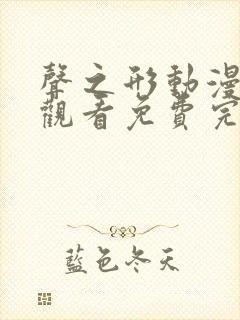 聲之形動漫
觀看免費完
藍色冬天